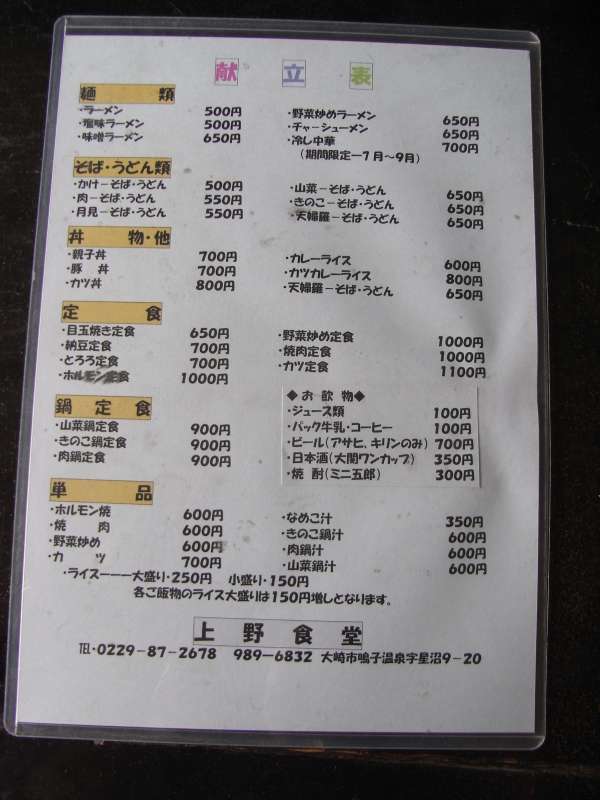 献立表
麺類
・ラーメン 500円
・塩味ラーメン 500円
・味噌ラーメン 650円
・野菜炒めラーメン 650円
・チャーシューメン 650円
・冷し中華 700円
(期間限定ー7月~9月)
そば・うどん類
・かけーそば・うどん 500円
・肉ーそば・うどん 550円
・月見ーそば・うどん 550円
・山菜ーそば・うどん 650円
・きのこーそば・うどん 650円
・天婦羅ーそば・うどん 650円
丼物・他
・親子丼 700円
・豚丼 700円
・カツ丼 800円
・カレーライス 600円
・カツカレーライス 800円
・天婦羅ーそば・うどん 650円
定食
・目玉焼き定食 650円
・納豆定食 700円
・とろろ定食 700円
・ホルモン定食 1000円
・野菜炒め定食 1000円
・焼肉定食 1000円
・カツ定食 1100円
鍋定食
・山菜鍋定食 900円
・きのこ鍋定食 900円
・肉鍋定食 900円
◆お飲物◆
・ジュース類 100円
・パック牛乳・コーヒー 100円
・ビール(アサヒ、キリンのみ) 700円
・日本酒(大関ワンカップ) 350円
・焼酎(ミニ五郎) 300円
単品
・ホルモン焼 600円
・焼肉 600円
・野菜炒め 600円
・カツ 700円
・なめこ汁 350円
・きのこ鍋汁 600円
・肉鍋汁 600円
・山菜鍋汁 600円
・ライスーーー大盛り・250円 小盛り・150円
各ご飯物のライス大盛りは150円増しとなります。
上野食堂
TEL・0229-87-2678 989-6832 大崎市鳴子温泉字星沼9-20